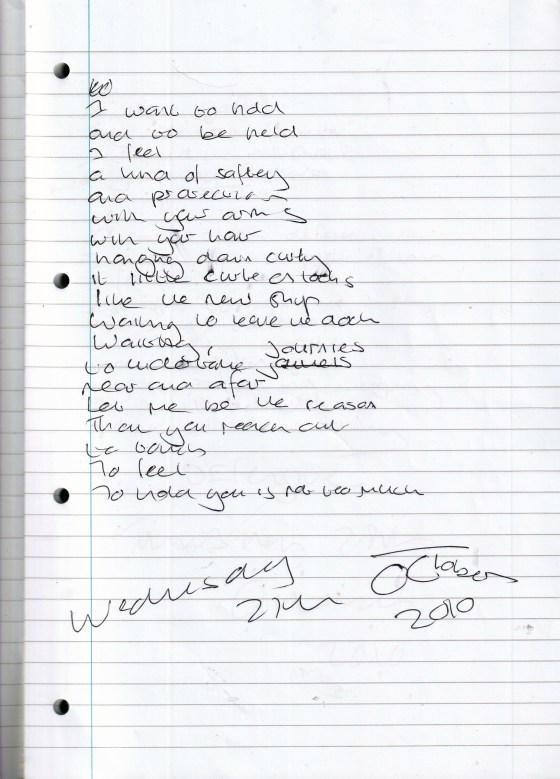 I want to hold
and to be held
I feel
a kind of saftey
and protection
with your arms
with your hair
hanging down curly
it little curls
like the new ship
waiting to leave the dock
waiting, journies
to undertake
near and afar
Let me be the reason
That you reach out
to touch
To feel
To hold you is not too much
Wednesday October
27th 2010